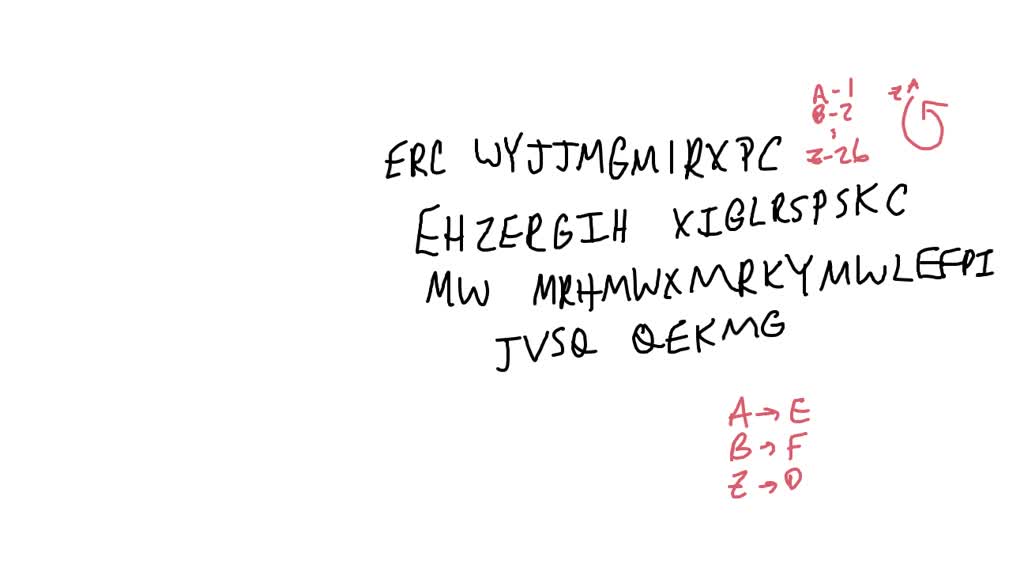 ERC WYJJMGMIRXPC
EHZERGIH XIGLRSPSKC
MW MRHMWXMRKYMWLEFPI
JVSQ QEKMG
A-1
B-2
:
Z-26
Z A
A→E
B→F
Z→D